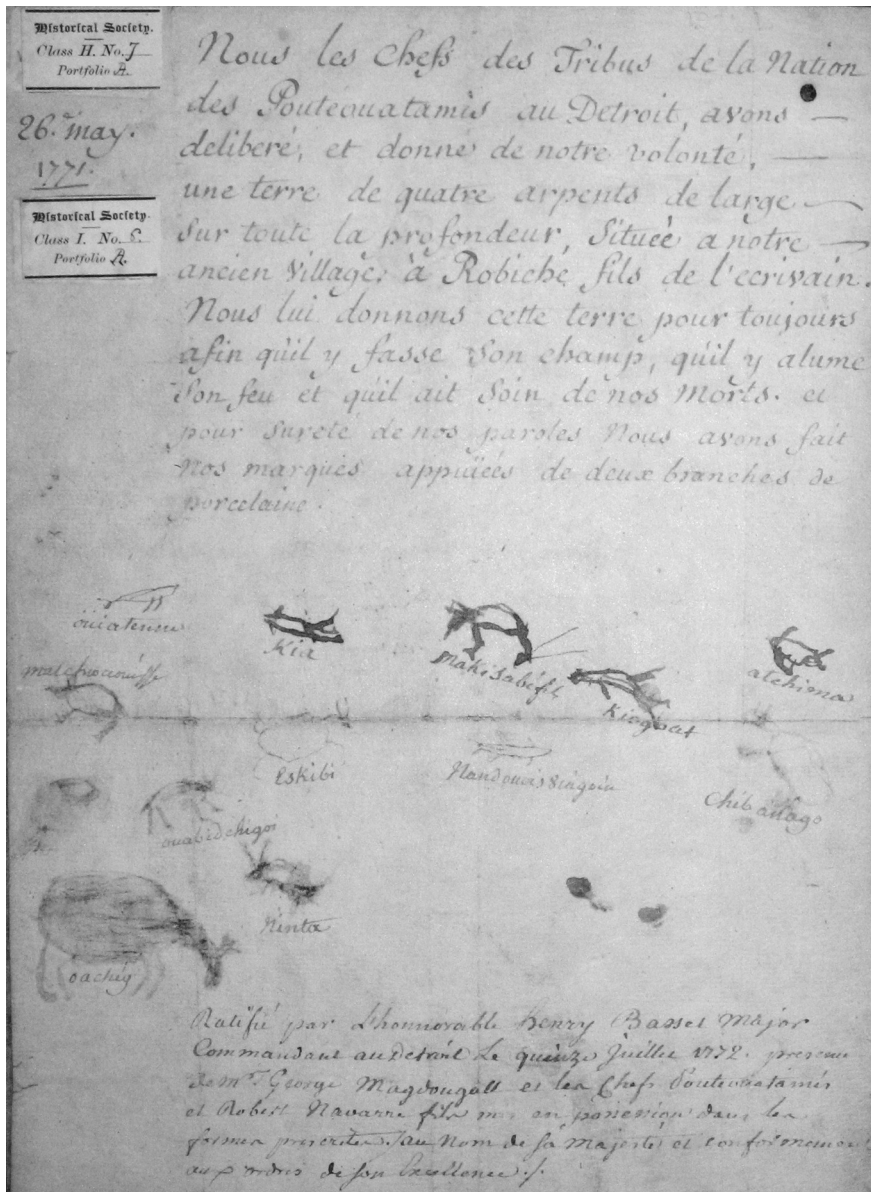 Historical Society.
Class H. No. 7
Portfolio A.
26. may.
1771.
Historical Society.
Class I. No. 5.
Portfolio A.
Nous les Chefs des Tribus de la Nation
des Pouteouatamis au Detroit, avons —
deliberé, et donné de notre volonté, —
une terre de quatre arpents de large —
Sur toute la profondeur, Située a notre —
ancien Village, à Robiche, fils de l'ecrivain.
Nous lui donnons cette terre pour toujours
afin qu'il y fasse Son champ, qu'il y alume
Son feu et qu'il ait Soin de nos Morts. et
pour Sureté de nos paroles Nous avons fait
Nos marques appuiées de deux branches de
porcelaine.
ouiatenne
Kia
makisabé fils
Kiogoat
alchima
Eskibi
Chibaïlago
ouabidchigoi
Ninta
oachéy
Ratifié par L'honnorable Henry Basset Major
Commandant au Detroit Le quinze Juillet 1772. presence
de Mr. George Magdougall et les Chefs Pouteouatamis
et Robert Navarre fils mis en possession dans les
formes prescrites, au Nom de Sa Majesté et conformement
aux ordres de Son Excellence ./.